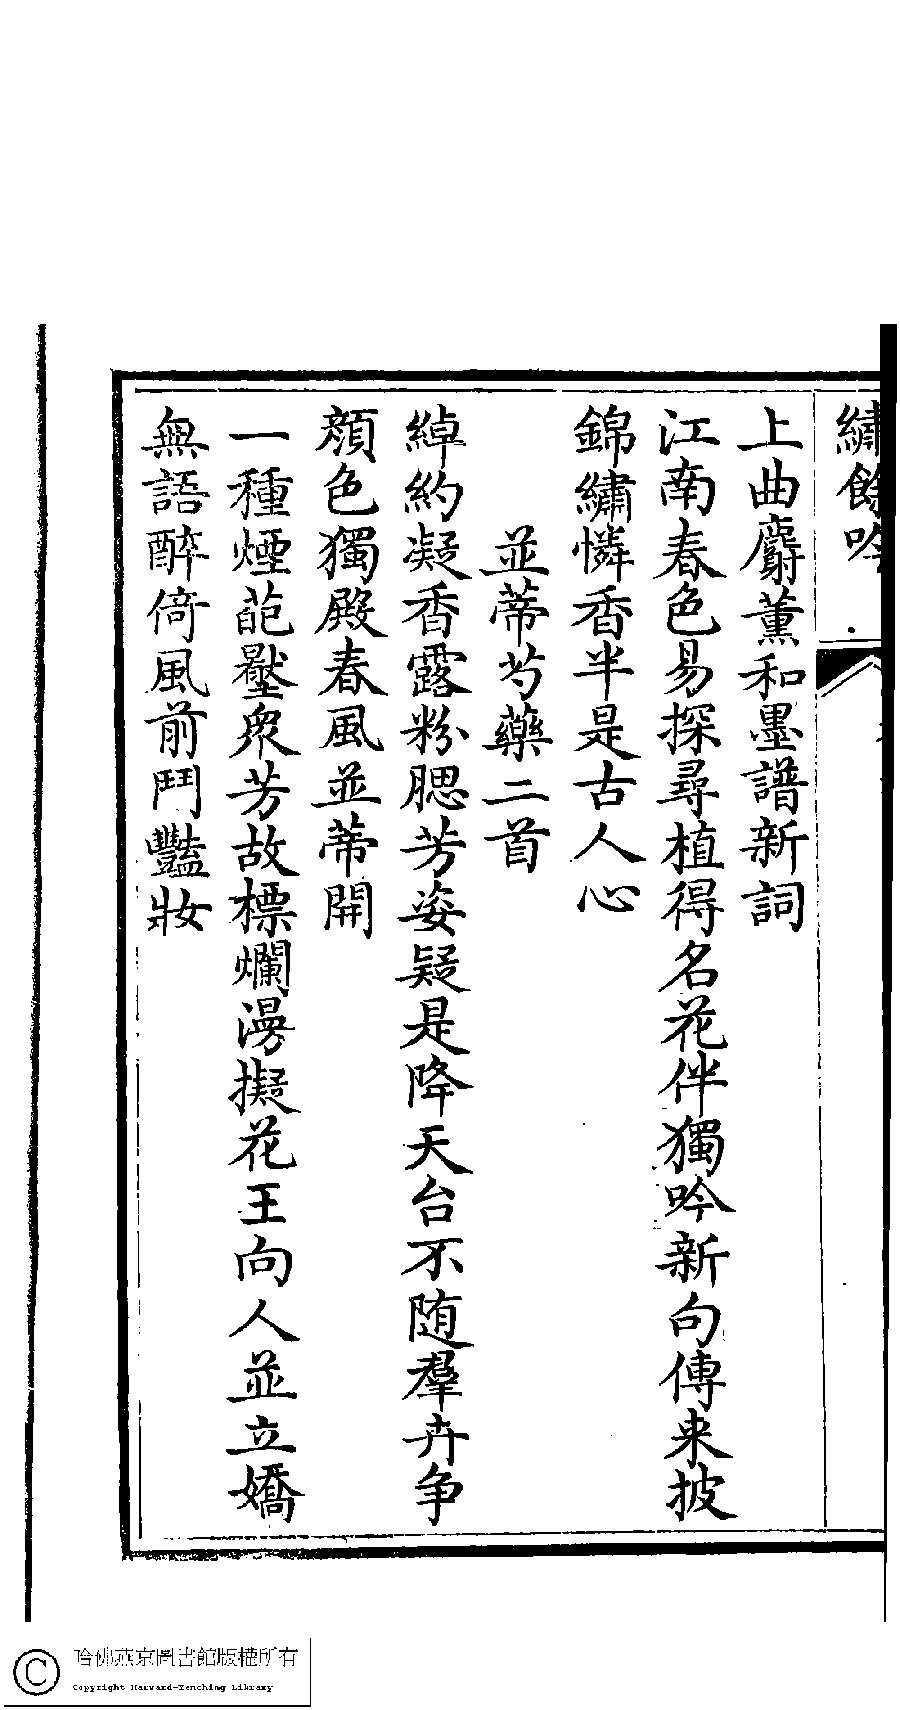 繡餘吟
上曲麝薰和墨譜新詞
江南春色易探尋植得名花伴獨吟新句傳来披
錦繡憐香半是古人心
並蒂芍藥二首
綽約凝香露粉腮芳姿疑是降天台不随羣卉争
顔色獨殿春風並蒂開
一種煙葩壓衆芳故標爛漫擬花王向人並立嬌
無語醉倚風前鬥豔妝
哈佛燕京圖書館版權所有
Copyright Harvard-Yenching Library